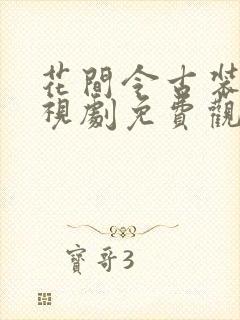 花間令古裝
視劇免費觀
寶哥3